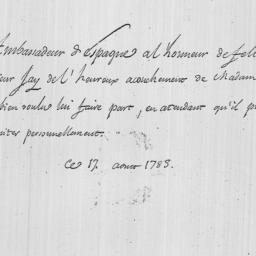 Ambassadeur d'Espagne a l'honneur de feli
ieur Jay de l'heureux acouchement de Madam
bien voulu lui faire part, en atendant qu'il p
iter personnellement.
Ce 17. aout 1783.